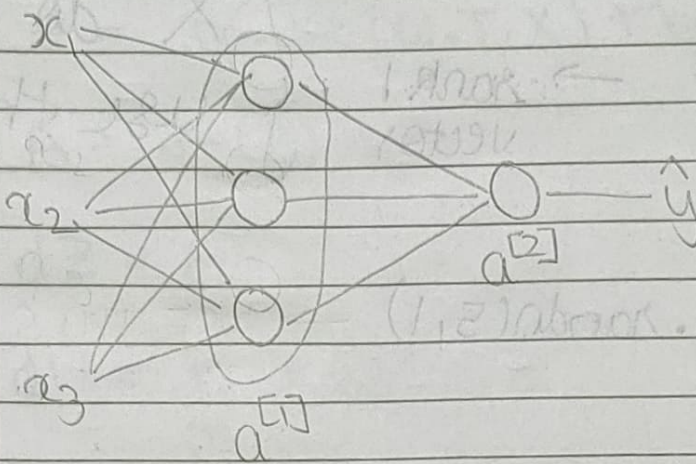 x₁
x₂
x₃
a[1]
a[2]
ŷ